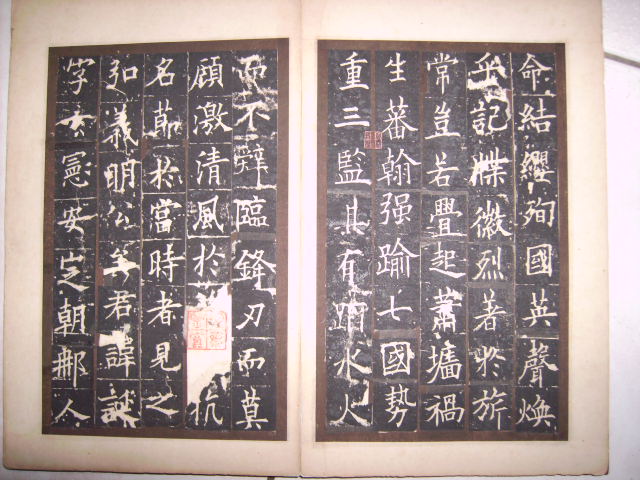 命結纓殉國英聲煥
乎記牒徽烈著於旂
常豈若舋起蕭墻禍
生蕃翰强踰七國勢
重三監其有蹈水火
而不辭臨鋒刃而莫
顧激清風於抗
名節於當時者見之
弘義明公矣君諱誕
字玄憲安定朝那人